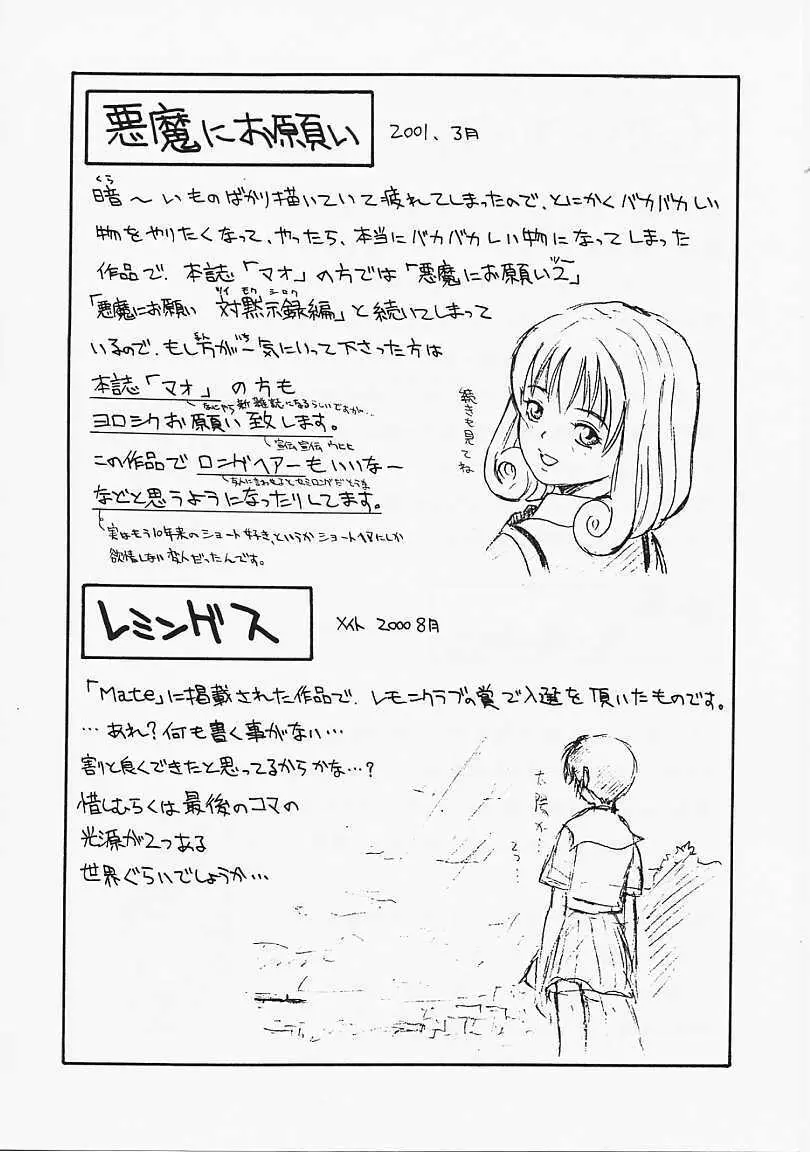 悪魔にお願い
2001、3月
くら
暗〜いものばかり描いていて疲れてしまったので、とにかくバカバカしい
物をやりたくなって、やったら、本当にバカバカしい物になってしまった
作品で、本誌「マオ」の方では「悪魔にお願い2」
ツー
「悪魔にお願い 対黙示録編」と続いてしまって
ツイ モク シロク
いるので、もし万が一気にいって下さった方は
まん いち
本誌「マオ」の方も
なにやら新雑誌になるらしいですが…
ヨロシクお願い致します。
宣伝宣伝 ウヒヒ
この作品でロングヘアーもいいなー
なんに言わせるとセミロングだとうな
などと思うようになったりしてます。
実はもう10年来のショート好き、というかショートヘアにしか
欲情しない変人だったんです。
続きも見てね
レミングス
メイト 2000 8月
「Mate」に掲載された作品で、レモンクラブの賞で入選を頂いたものです。
…あれ?何も書く事がない…
割と良くできたと思ってるからかな…?
惜しむらくは最後のコマの
光源が2つある
世界ぐらいでしょうか…
太陽が…
2つ…